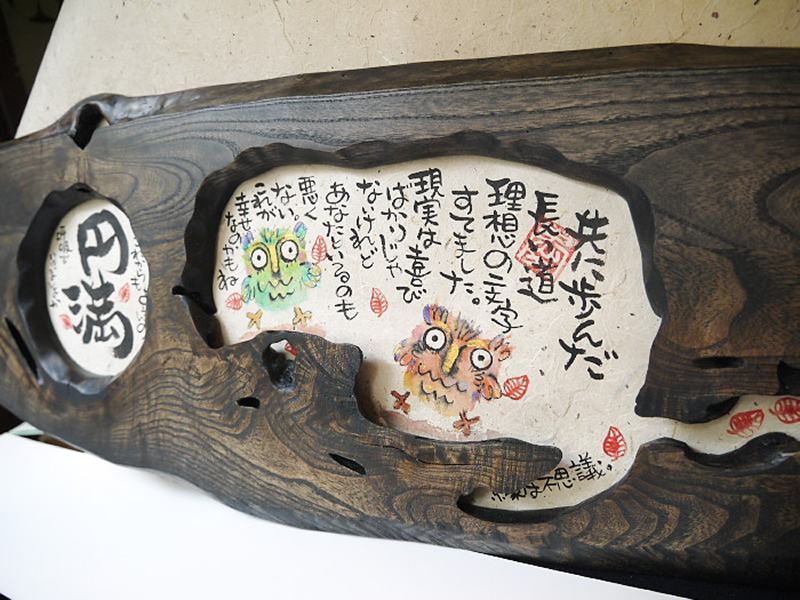 共に歩んだ
長い道
理想の二文字
すてました。
現実は喜び
ばかりじゃ
ないけれど
あなたといるのも
悪く
ない。
これが
幸せ
なのかもね
不思議。
円満